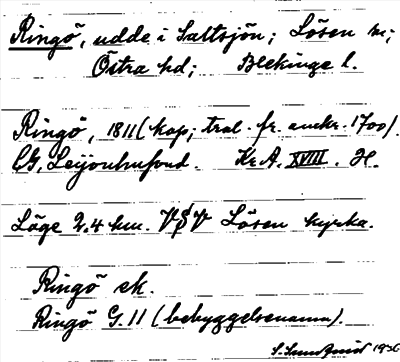 Ringö, udde i Saltsjön; Lösen sn;
Östra hd; Blekinge l.
Ringö, 1811 (kop; trol. fr. omkr. 1700).
CG, Leijonhufvud. Kr. A. XVIII. H.
Läge 2.4 km. VSV Lösen kyrka.
Ringö ek.
Ringö G. 11 (bebyggelsenamn).
1936